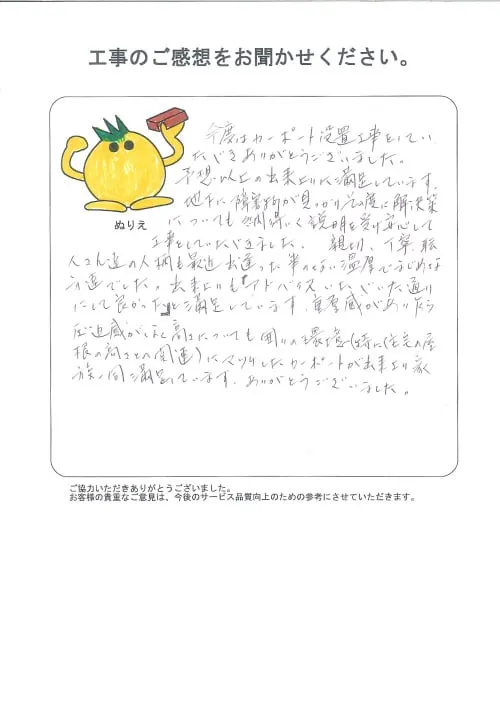 工事のご感想をお聞かせください。
今度はカーポート設置工事をしてい
ただきありがとうございました。
予想以上の出来上りに満足しています。
地下に障害物が見つかり その度に解決策
についても 納得いく説明を受け安心して
工事をしていただきました。 親切、丁寧、職
ぬりえ
人さん達の人柄も最近出逢った事のない温厚でまじめな
方達でした。出来上りもアドバイスいただいた通り
にして良かったと満足しています。重厚感がありながら
圧迫感がなく高さについても囲りの環境(特に住宅の屋
根の高さとの関連)にマッチしたカーポートが出来上り家
族一同満足しています。ありがとうございました。
ご協力いただきありがとうございました。
お客様の貴重なご意見は、今後のサービス品質向上のための参考にさせていただきます。